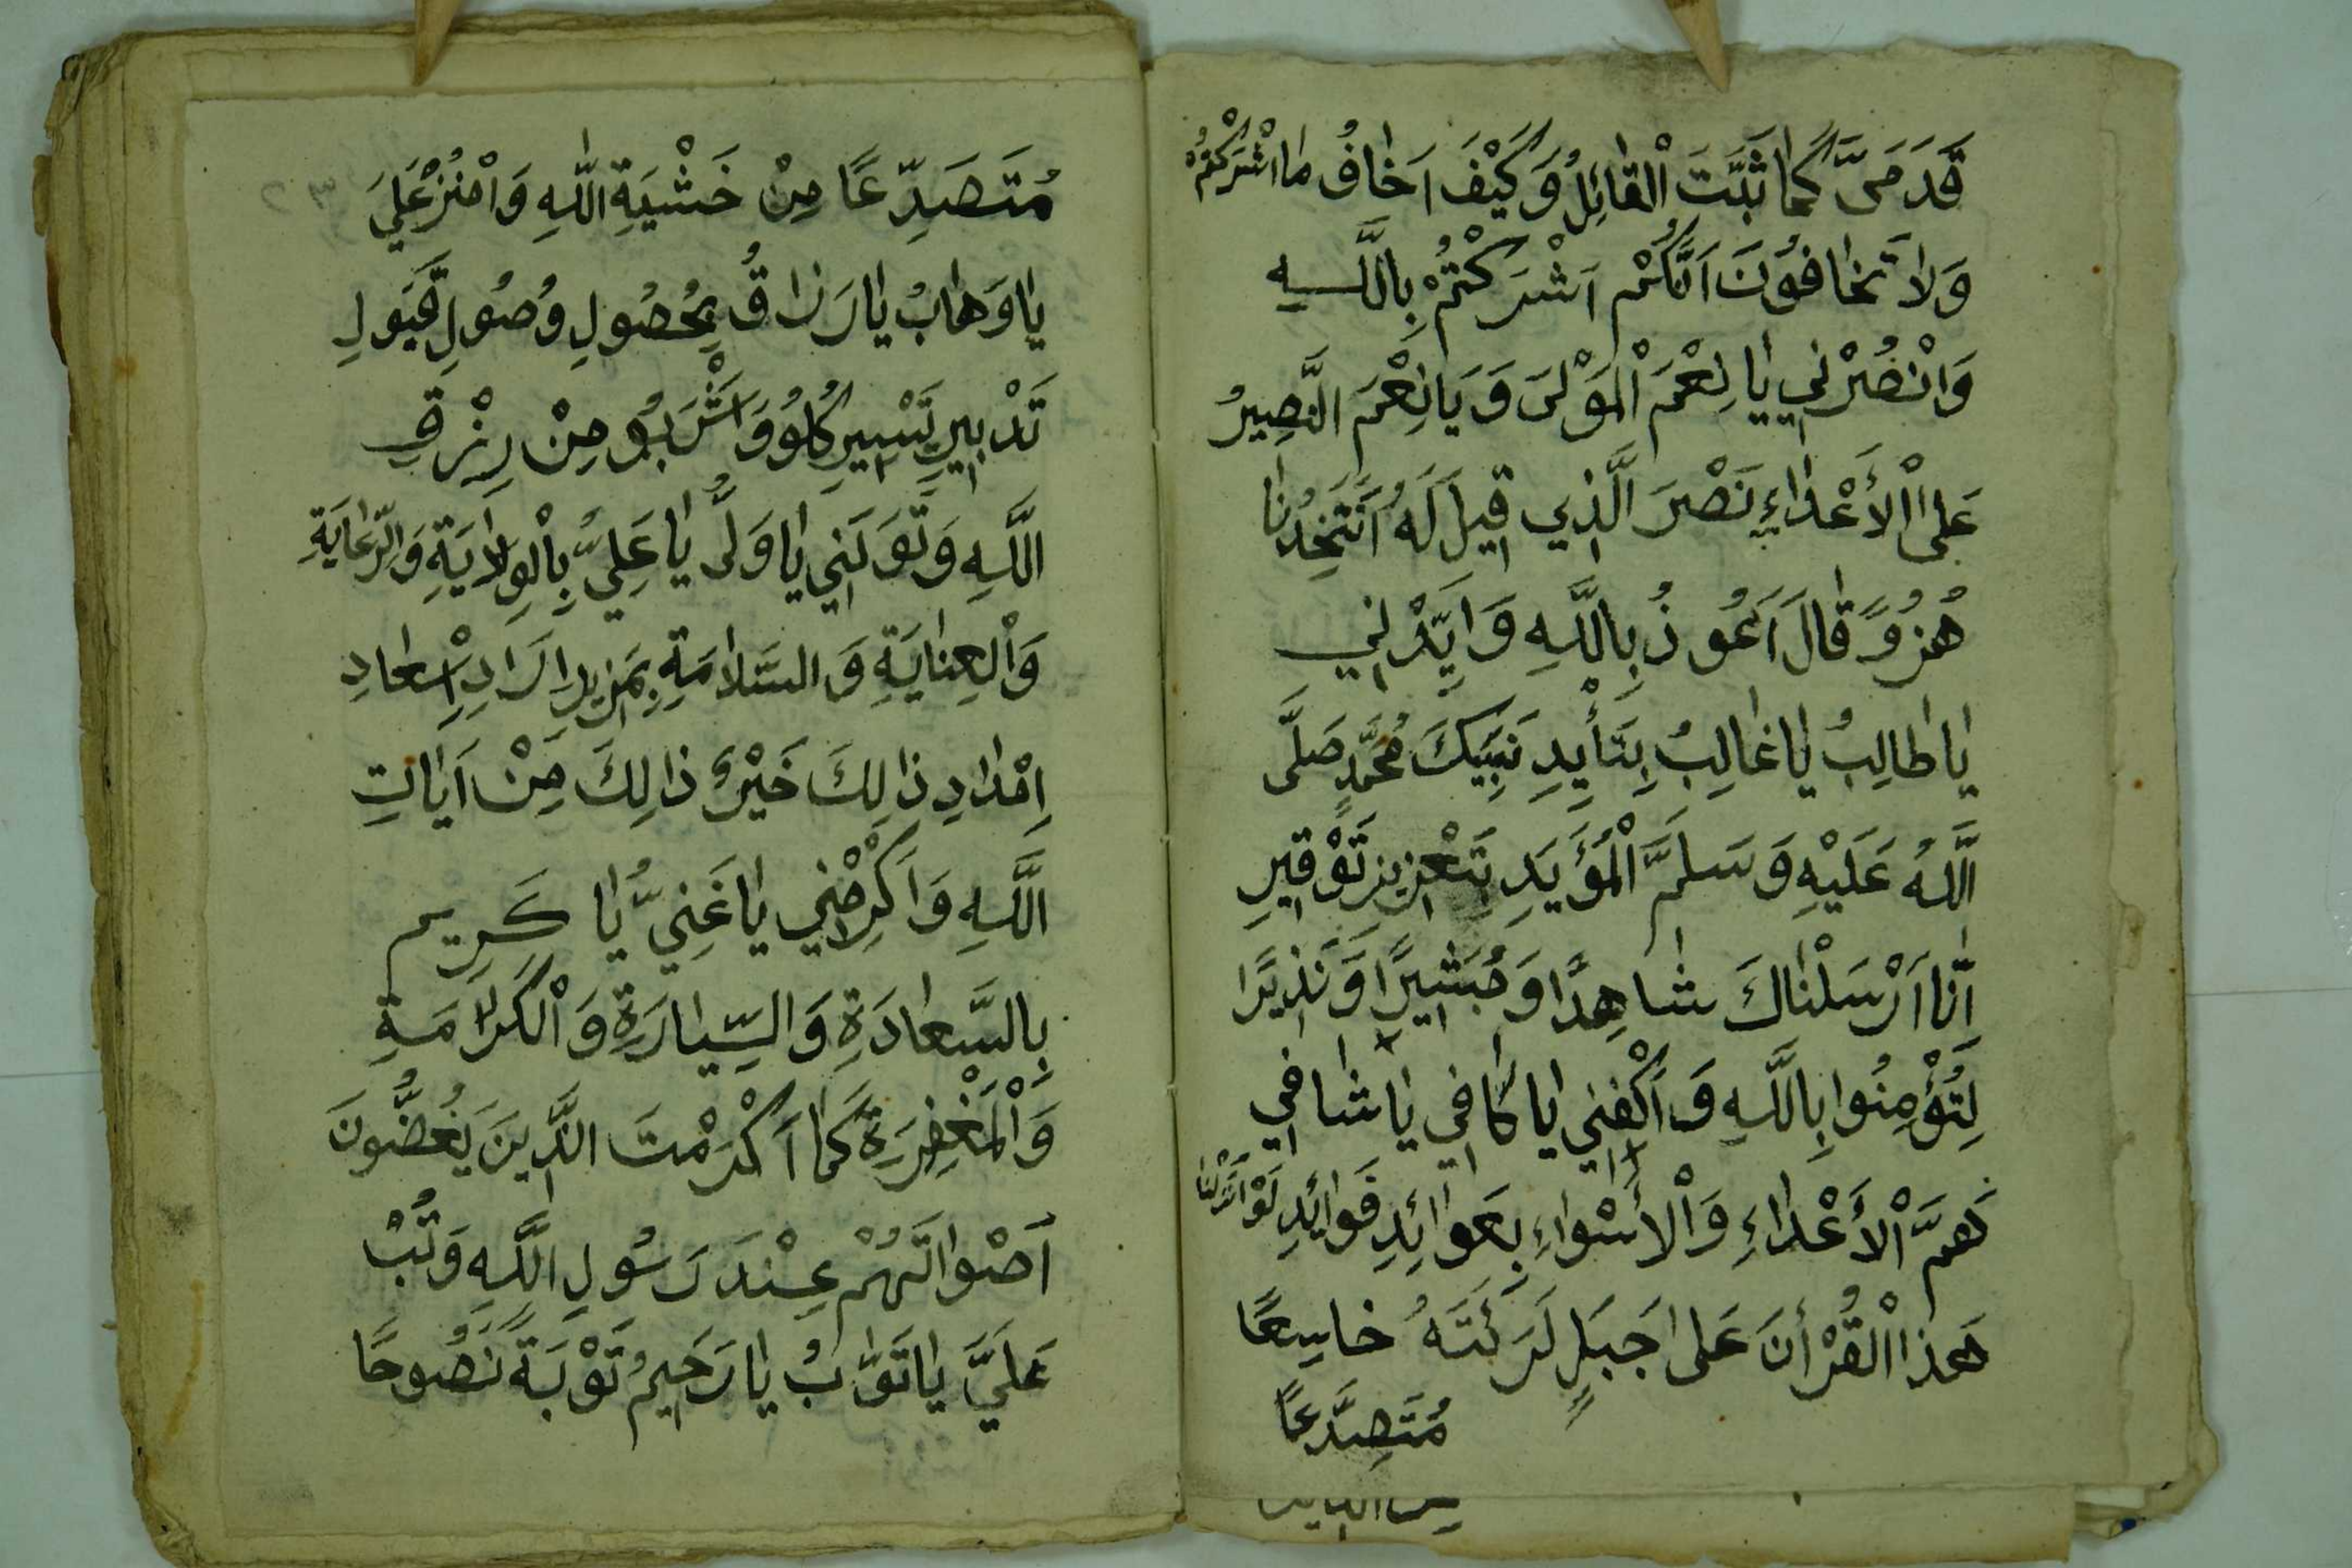 قَدَمَىَّ كَمَا ثَبَّتَ الْقَائِلُ وَكَيْفَ اَخَافُ مَا اشْرَكْتُمْ
وَلَا تَخَافُونَ اَنَّكُمْ اَشْرَكْتُمْ بِاللَّهِ
وَانْصُرْنِي يَا نِعْمَ الْمَوْلَى وَيَا نِعْمَ النَّصِيرُ
عَلَى الْأَعْدَاءِ نَصْرَ الَّذِي قِيلَ لَهُ اَتَتَّخِذُنَا
هُزُوًا قَالَ اَعُوذُ بِاللَّهِ وَاَيِّدْنِي
يَا طَالِبُ يَا غَالِبُ بِتَأْيِيدِ نَبِيِّكَ مُحَمَّدٍ صَلَّى
اللَّهُ عَلَيْهِ وَسَلَّمَ الْمُؤَيَّدِ بِتَعْزِيزِ تَوْقِيرِ
اِنَّا اَرْسَلْنَاكَ شَاهِدًا وَمُبَشِّيرًا وَنَذِيرًا
لِتُؤْمِنُوا بِاللَّهِ وَاكْفِنِي يَا كَافِي يَا شَافِي
هَمَّ الْأَعْدَاءِ وَالْأَسْوَاءِ بِعَوَائِدِ فَوَائِدِ لَوْ اَنْزَلْنَا
هَذَا الْقُرْأنَ عَلَى جَبَلٍ لَرَئَتَهُ خَاسِعًا
مُتَصَدَّعًا
مُتَصَدِّعًا مِنْ خَشْيَةِ اللَّهِ وَامْنُنْ عَلَيَ
يَا وَهَابُ يَا رَزَاقُ بِحُصُولِ وُصُولِ قَبَولِ
تَدْبِيرِ تَيْسِيرِ كُلُو وَاشْرَبُو مِنْ رِزْقِ
اللَّهِ وَتَوَلَّنِي يَا وَلَىُّ يَا عَلِيُّ بِالْوِلَايَةِ وَالرِّعَايَةِ
وَالْعِنَايَةِ وَالسَّلَامَةِ بِمَزِيدِ اِرَادِ اِسْعَادِ
اِمْدَادِ ذَالِكَ خَيْرٌ ذَالِكَ مِنْ اَيَاتِ
اللَّهِ وَاَكْرِمْنِي يَا غَنِيُّ يَا كَرِيم
بِالسَّعَادَةِ وَالسِّيَارَةِ وَالْكَرَامَةِ
وَالْمَغْفِرَةِ كَمَا اَكْرَمْتَ الَّذِينَ يَغُضُّونَ
اَصْوَاتَهُمْ عِنْدَ رَسُولِ اللَّهِ وَتُبْ
عَلَيَّ يَا تَوَّابُ يَا رَحِيمُ تَوْبَةً نَصُوحًا